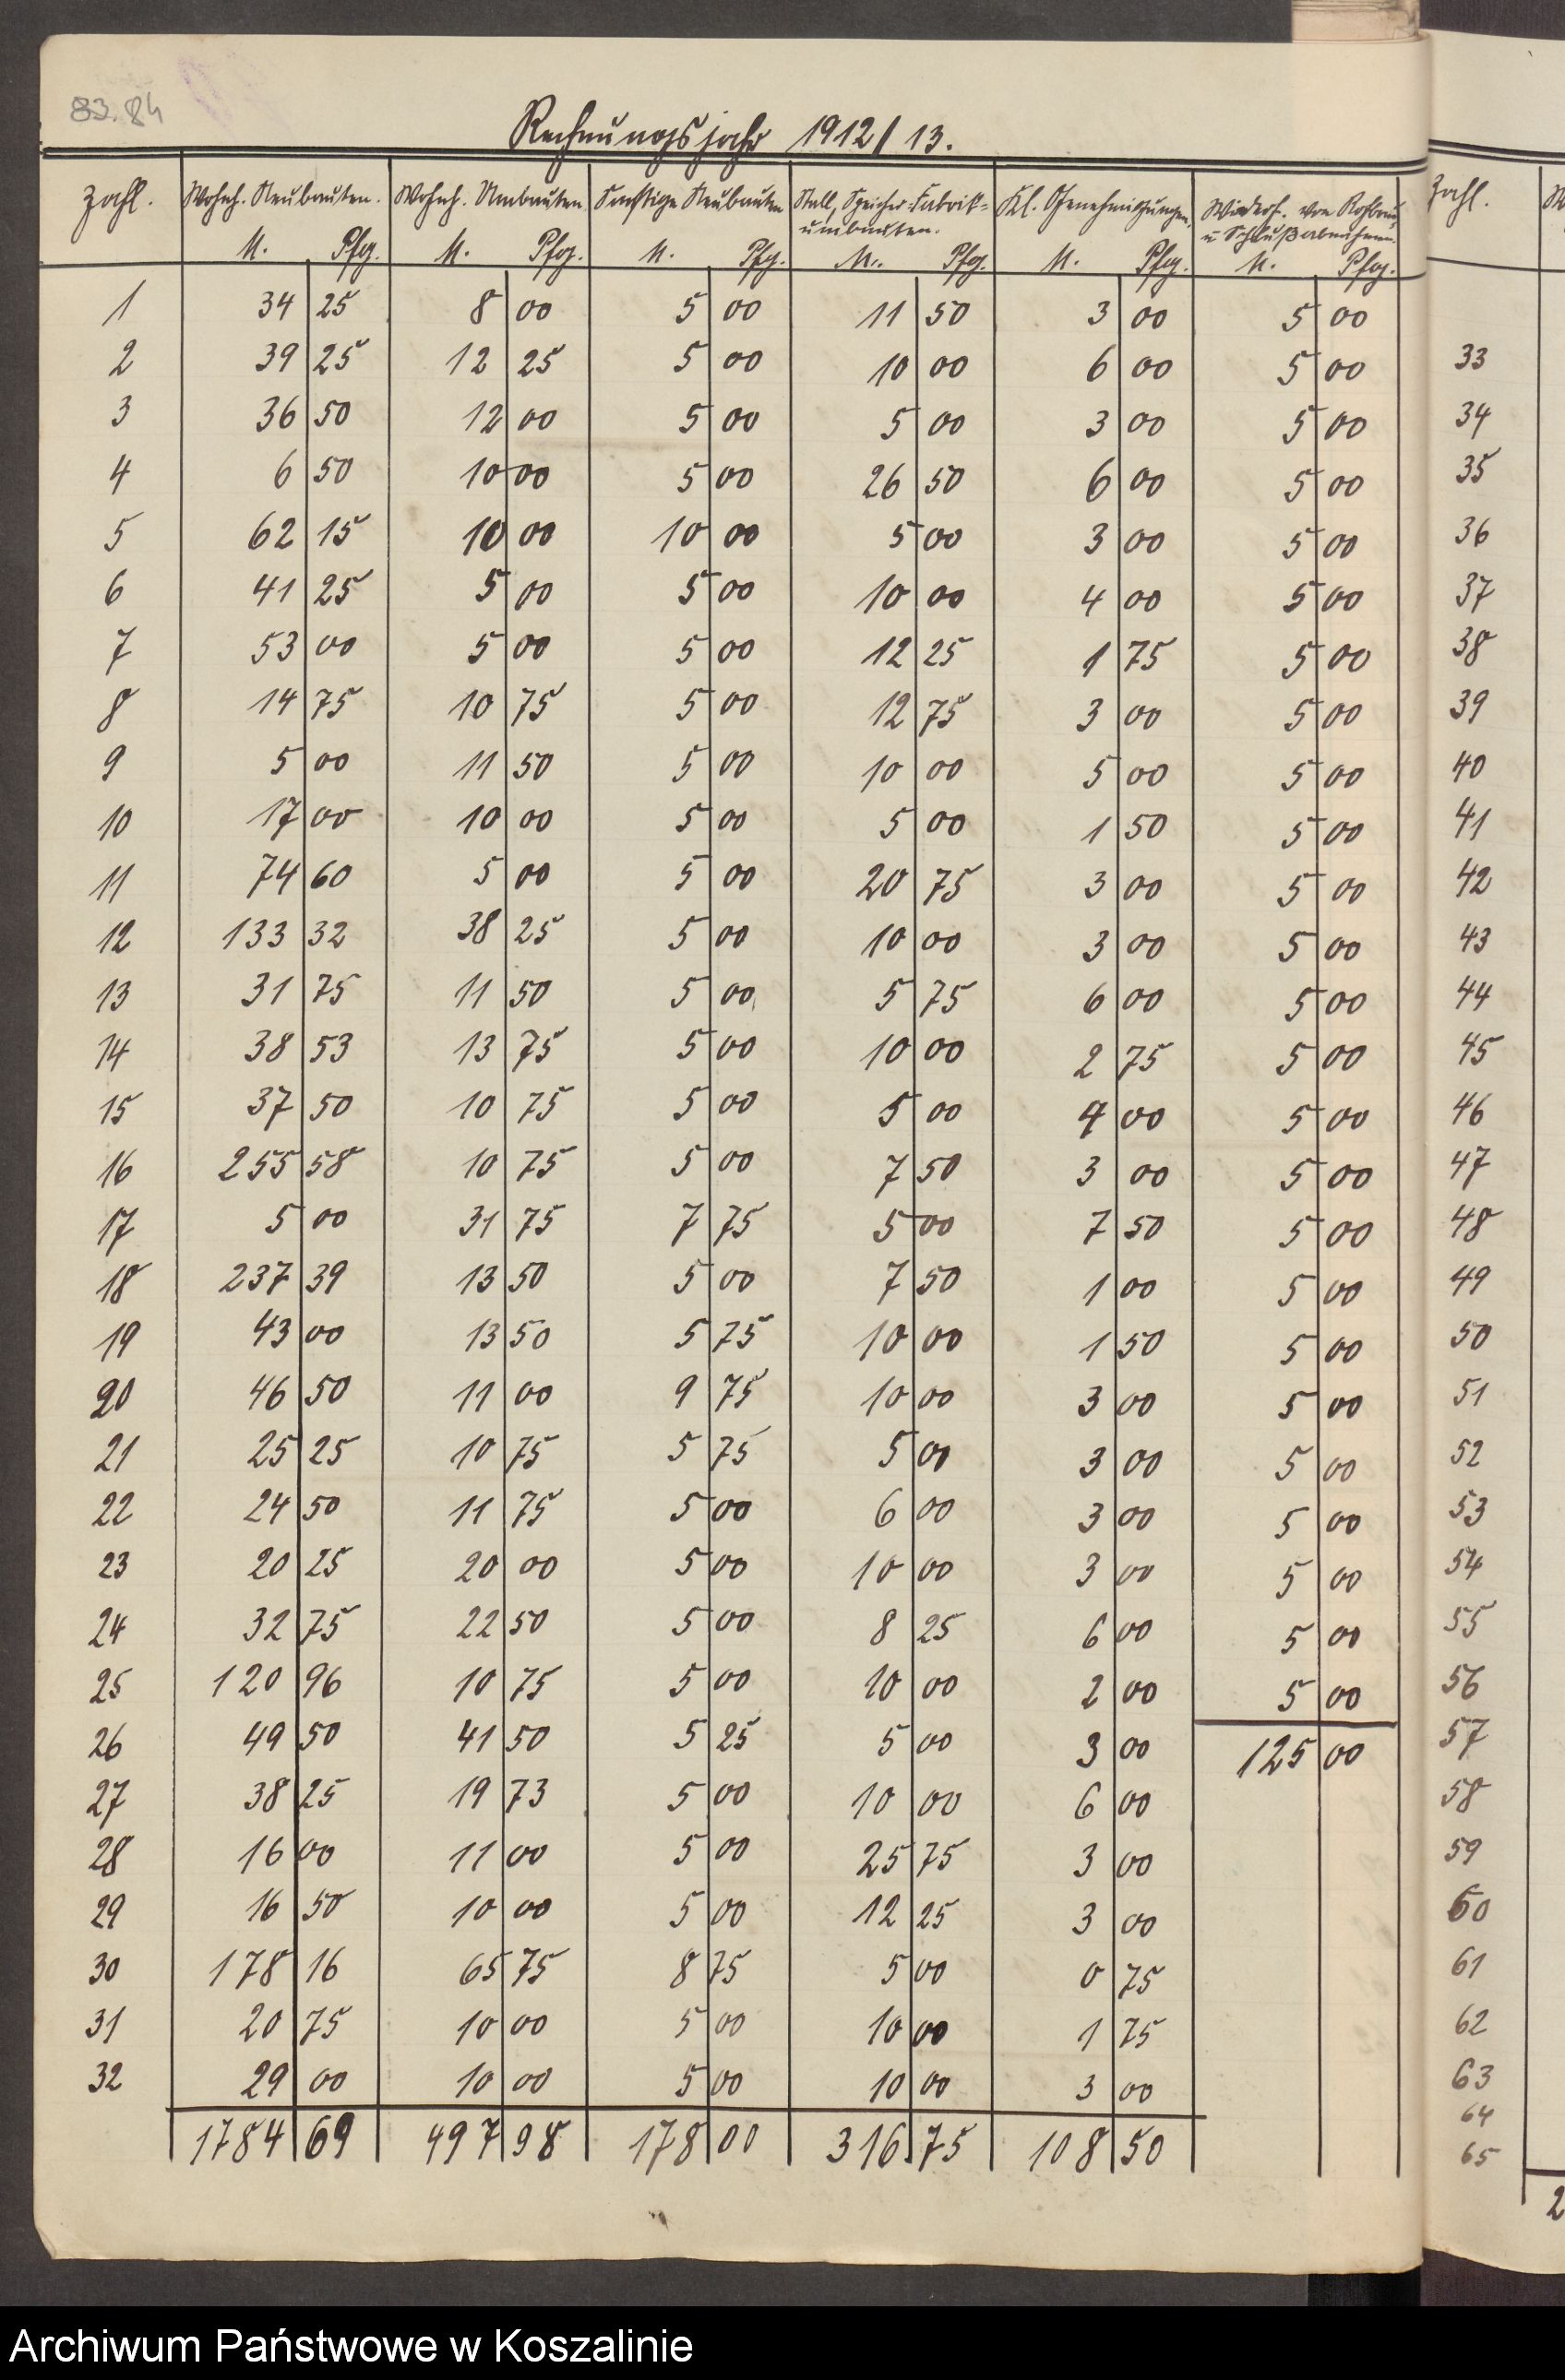 83.84
Rechnungsjahr 1912/13.
Zahl. Wohnh. Neubauten. Wohnh. Umbauten. Sonstige Neubauten Stall, Speicher-Fabrik- Kl. Genehmigungen, Wiederh. von Rohbau
umbauten. u Schlußabnahmen.
M. Pfg. M. Pfg. M. Pfg. M. Pfg. M. Pfg. M. Pfg.
1 34 25 8 00 5 00 11 50 3 00 5 00
2 39 25 12 25 5 00 10 00 6 00 5 00
3 36 50 12 00 5 00 5 00 3 00 5 00
4 6 50 10 00 5 00 26 50 6 00 5 00
5 62 15 10 00 10 00 5 00 3 00 5 00
6 41 25 5 00 5 00 10 00 4 00 5 00
7 53 00 5 00 5 00 12 25 1 75 5 00
8 14 75 10 75 5 00 12 75 3 00 5 00
9 5 00 11 50 5 00 10 00 5 00 5 00
10 17 00 10 00 5 00 5 00 1 50 5 00
11 74 60 5 00 5 00 20 75 3 00 5 00
12 133 32 38 25 5 00 10 00 3 00 5 00
13 31 75 11 50 5 00 5 75 6 00 5 00
14 38 53 13 75 5 00 10 00 2 75 5 00
15 37 50 10 75 5 00 5 00 4 00 5 00
16 255 58 10 75 5 00 7 50 3 00 5 00
17 5 00 31 75 7 75 5 00 7 50 5 00
18 237 39 13 50 5 00 7 50 1 00 5 00
19 43 00 13 50 5 75 10 00 1 50 5 00
20 46 50 11 00 9 75 10 00 3 00 5 00
21 25 25 10 75 5 75 5 00 3 00 5 00
22 24 50 11 75 5 00 6 00 3 00 5 00
23 20 25 20 00 5 00 10 00 3 00 5 00
24 32 75 22 50 5 00 8 25 6 00 5 00
25 120 96 10 75 5 00 10 00 2 00 5 00
26 49 50 41 50 5 25 5 00 3 00 125 00
27 38 25 19 73 5 00 10 00 6 00
28 16 00 11 00 5 00 25 75 3 00
29 16 50 10 00 5 00 12 25 3 00
30 178 16 65 75 8 75 5 00 0 75
31 20 75 10 00 5 00 10 00 1 75
32 29 00 10 00 5 00 10 00 3 00
1784 69 497 98 178 00 316 75 108 50
Zahl.
33
34
35
36
37
38
39
40
41
42
43
44
45
46
47
48
49
50
51
52
53
54
55
56
57
58
59
60
61
62
63
64
65
2
Archiwum Państwowe w Koszalinie